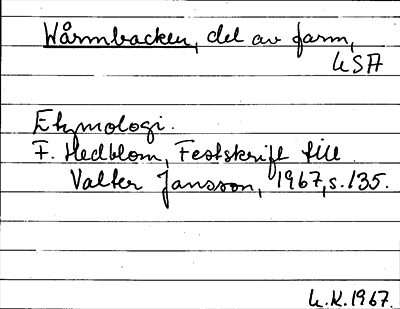 Wårmbacken, del av farm,
USA
Etymologi.
F. Hedblom, Festskrift till
Valter Jansson, 1967, s. 135.
U.K. 1967.